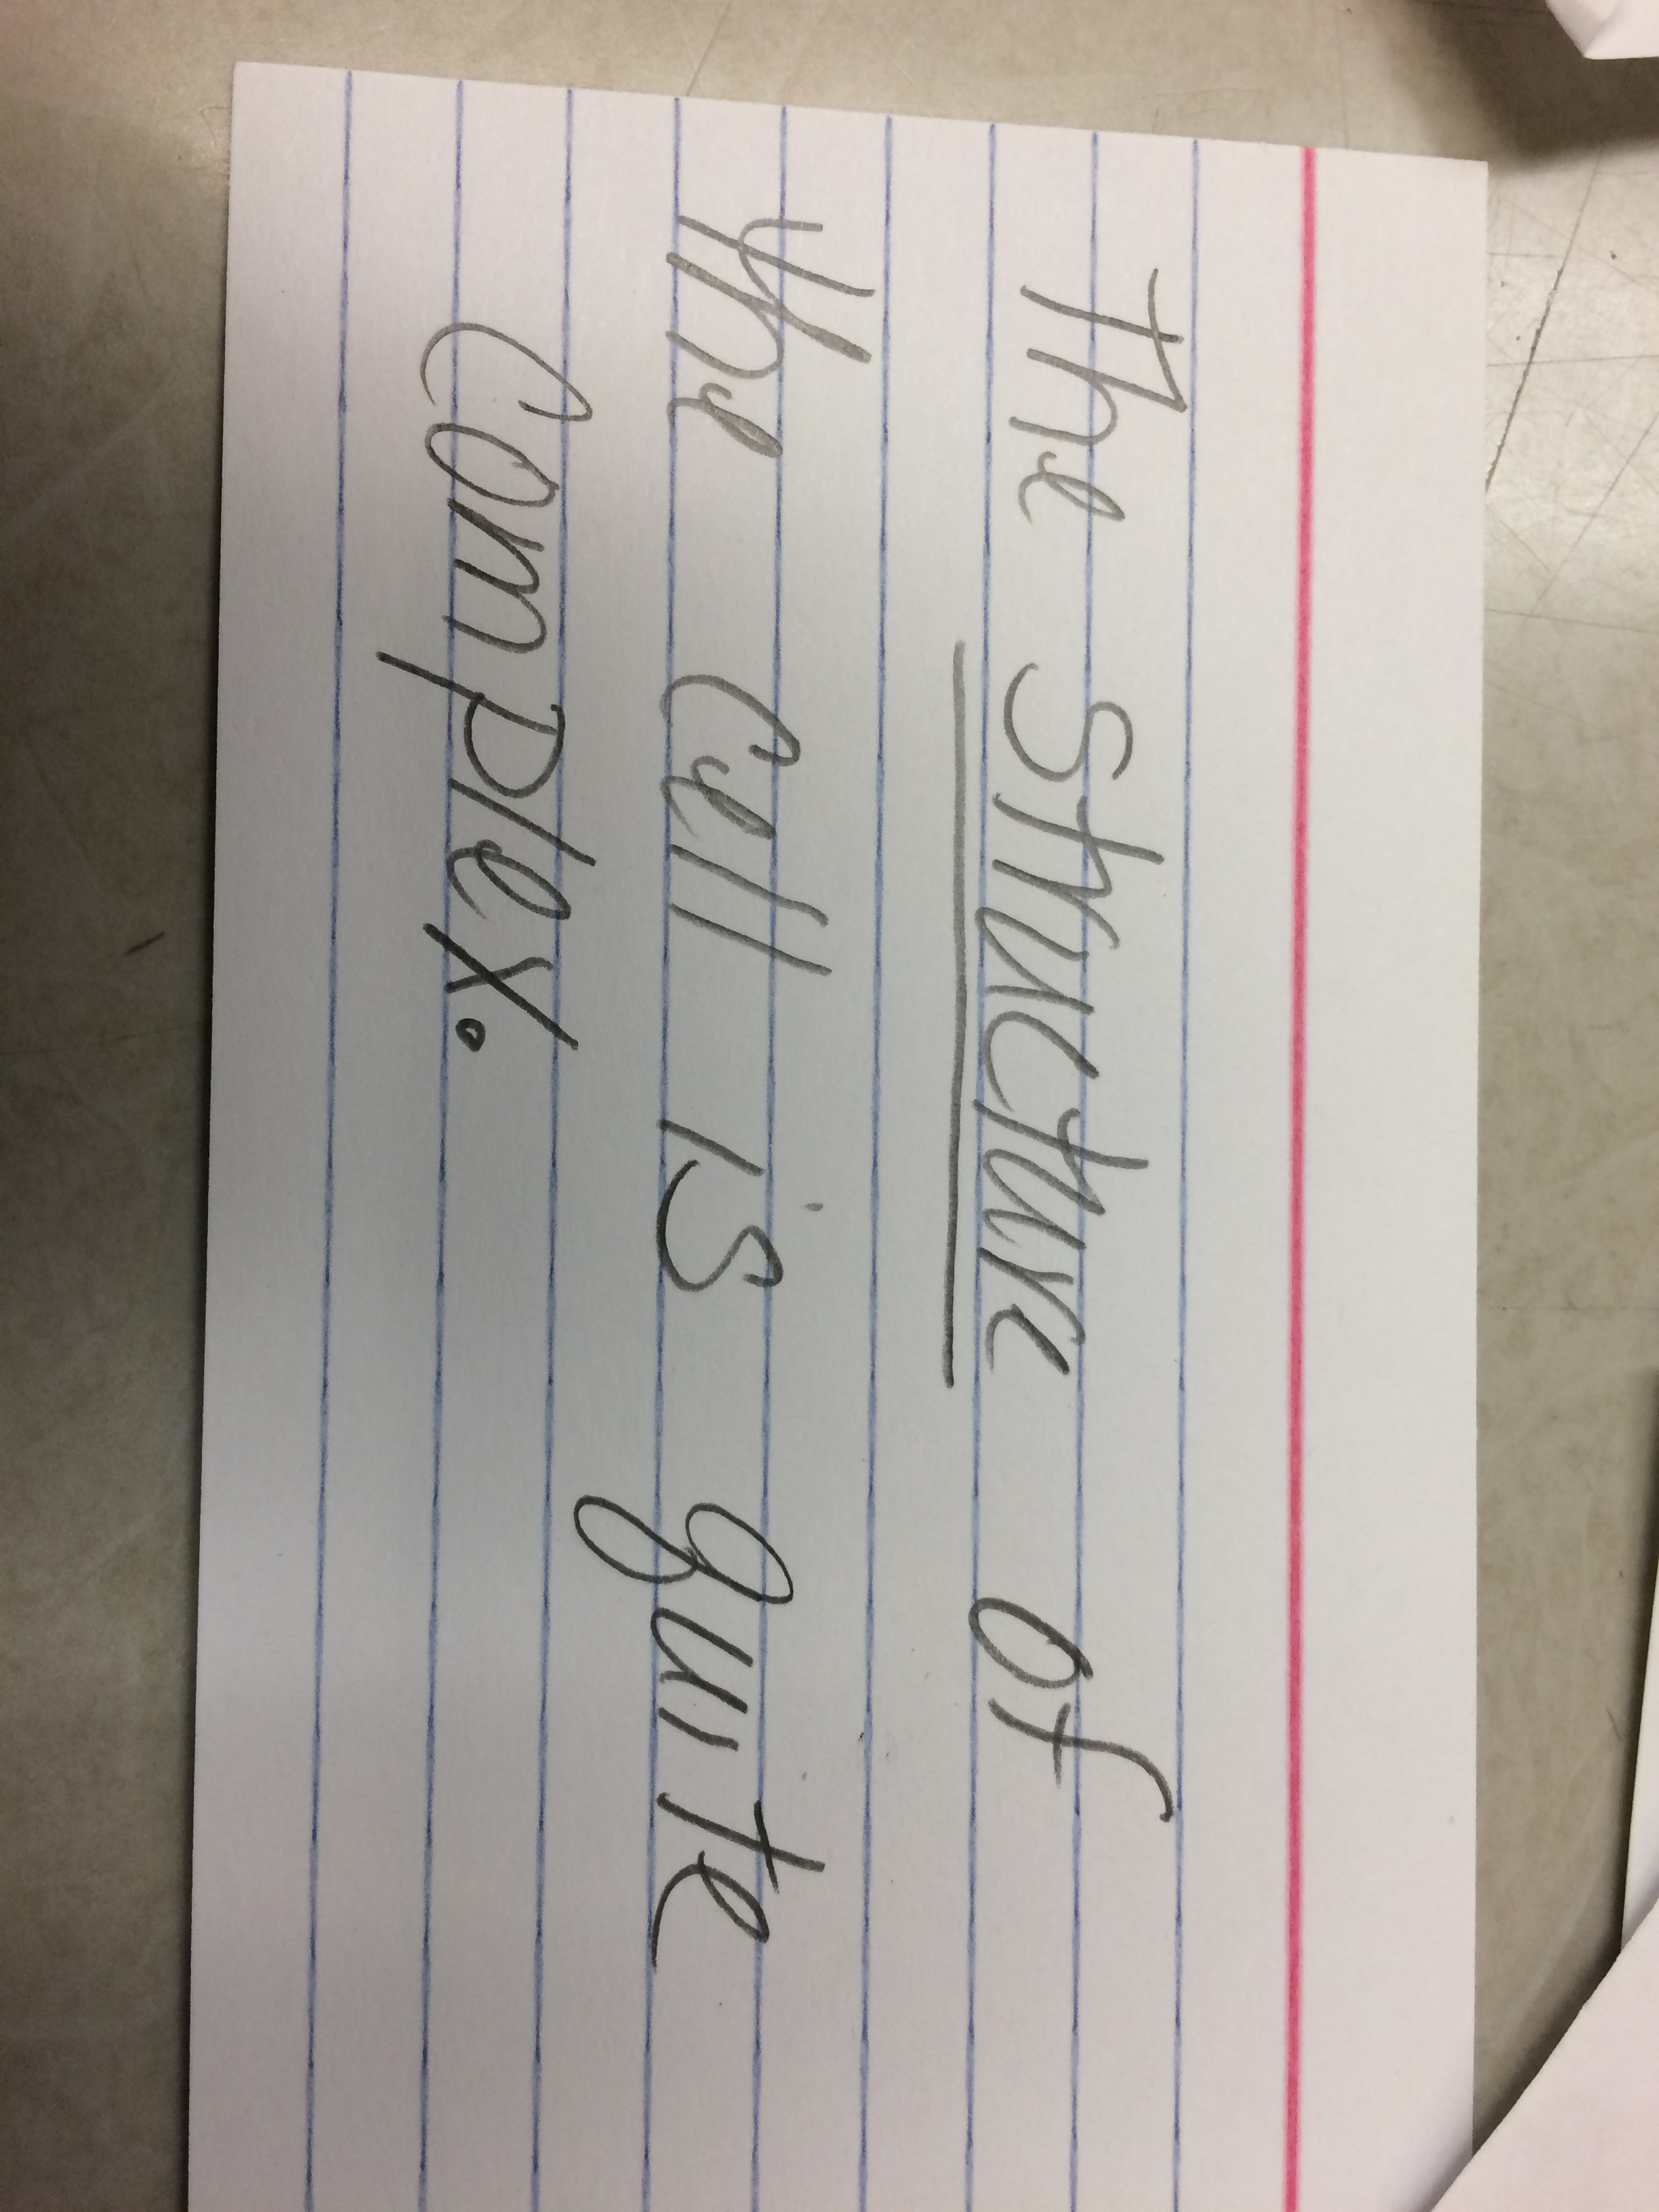 The structure of
the cell is quite
complex.